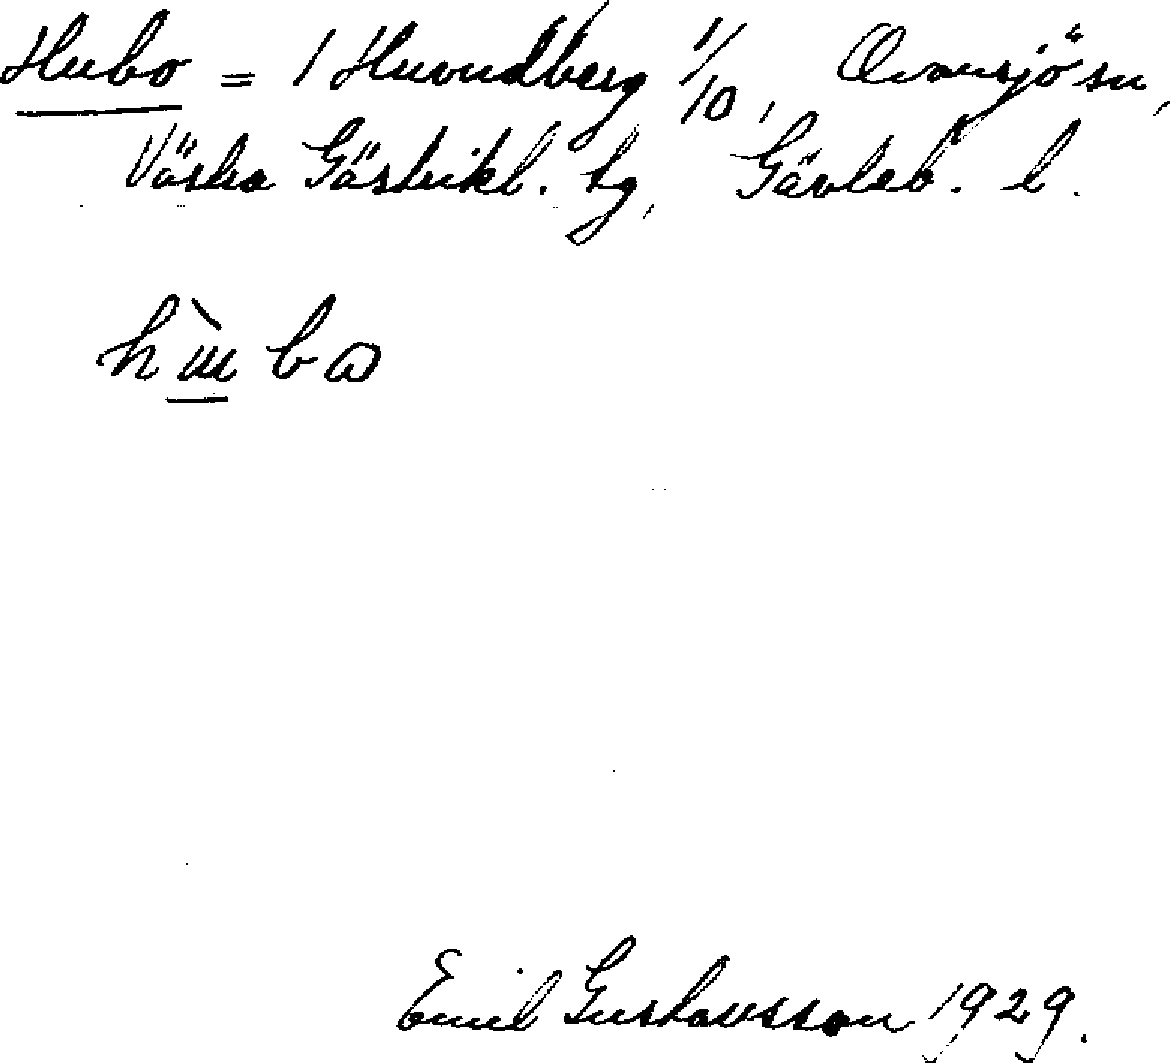 Hubo = 1 Huvudberg 1/10, Ovansjö sn,
Västra Gästrikl. hg, Gävleb. l.
h̀u̲bω
Emil Gustavsson 1929.